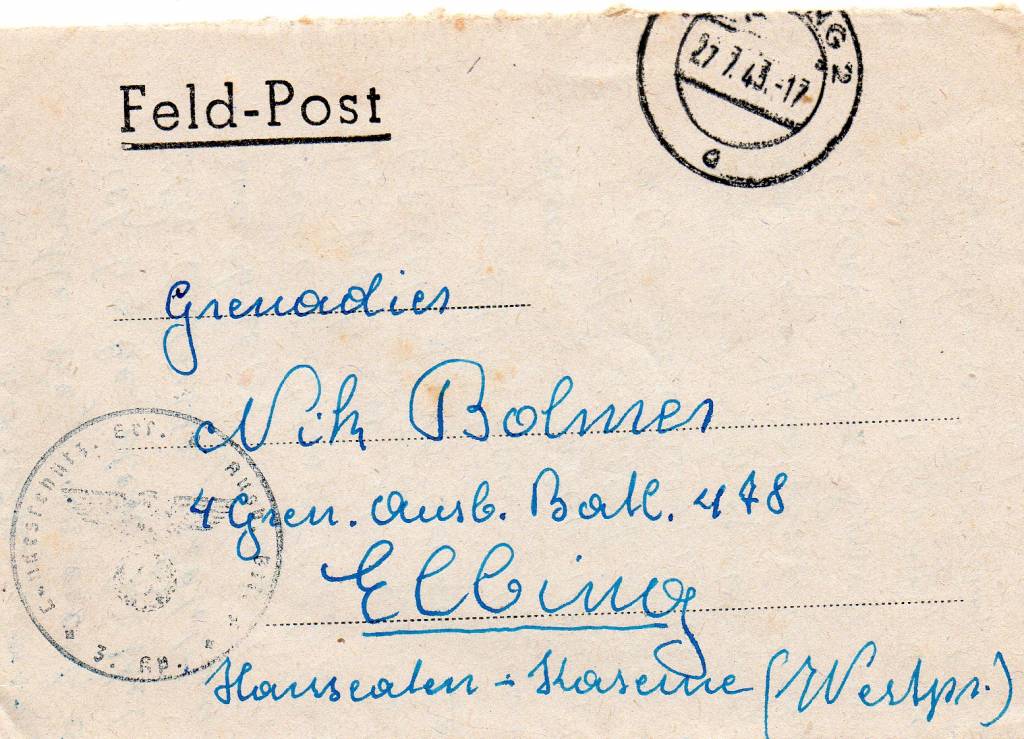 Feld-Post
27.7.43.-17
2
a
Grenadier
Nik Bolmer
4 Gren. Ausb. Batl. 478
Elbing
Hanseaten-Kaserne (Westpr.)
3. Kp.